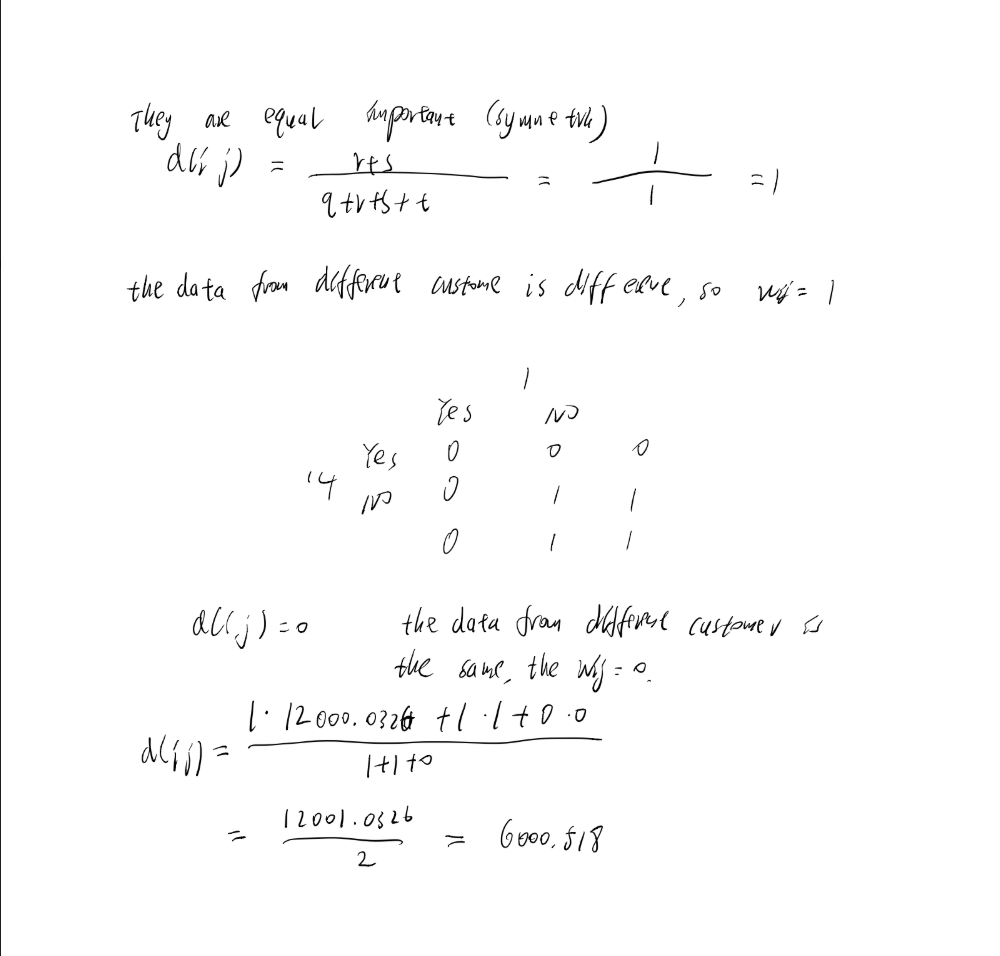 They are equal important (symmetric)
d(i j) = r+s / q+r+s+t = 1 / 1 = 1
the data from different custome is differve, so wij = 1
1
Yes NO
Yes 0 0 0
14 NO 0 1 1
0 1 1
d(i j) = 0 the data from different customer is
the same, the wij = 0.
d(ij) = 1· 12000.0326 + 1 · 1 + 0 · 0 / 1+1+0
= 12001.0326 / 2 = 6000.518